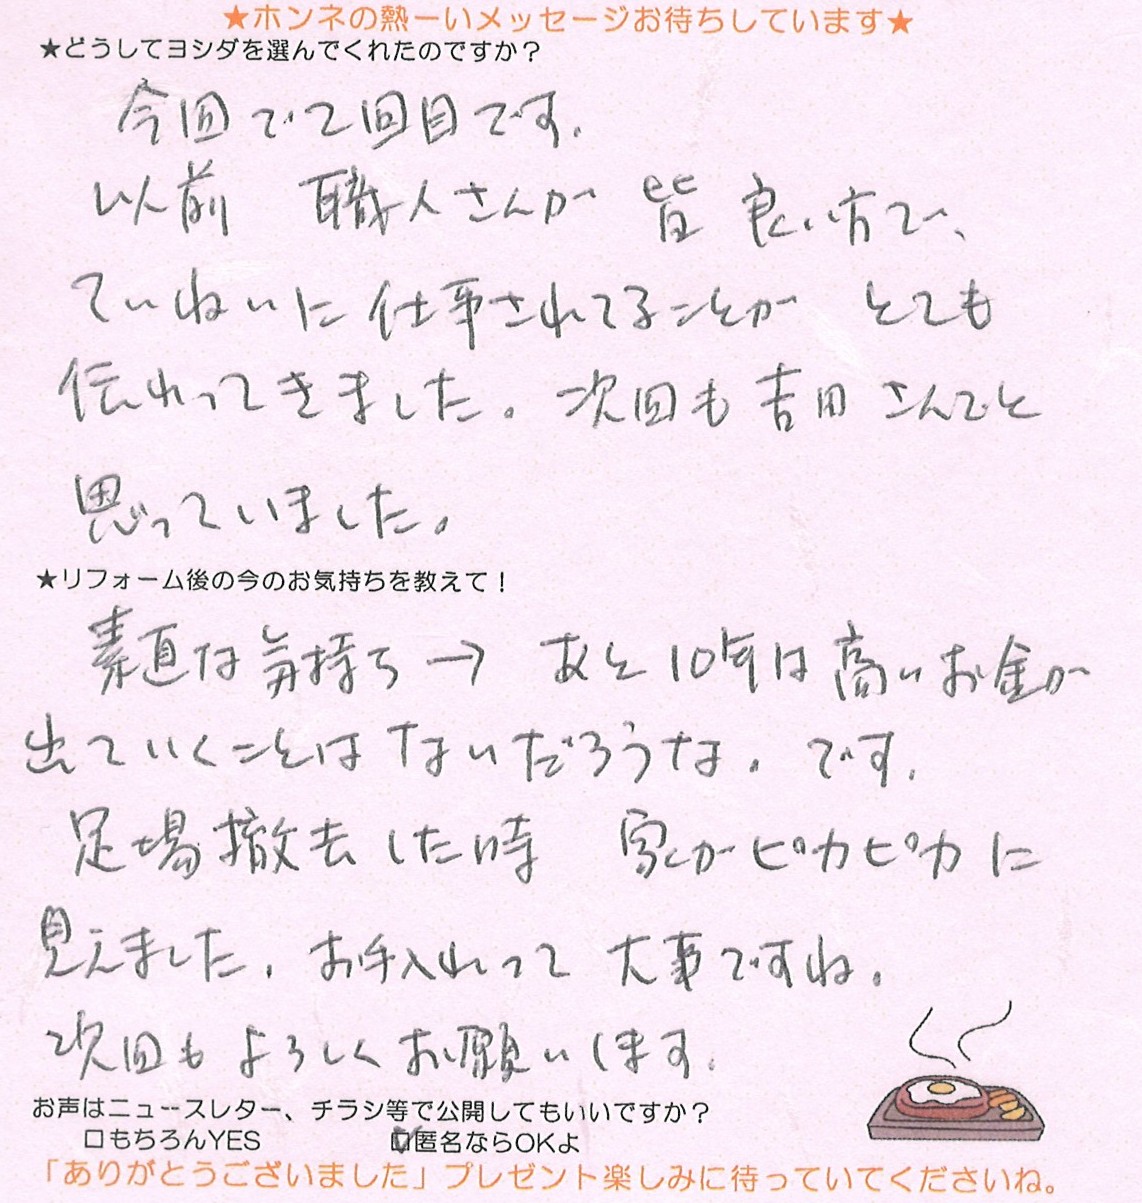 ★ホンネの熱ーいメッセージお待ちしています★
★どうしてヨシダを選んでくれたのですか？
今回で2回目です.
以前 職人さんが 皆 良い方で、
ていねいに 仕事されてることが とても
伝わってきました。次回も 吉田 さんでと
思っていました。
★リフォーム後の今のお気持ちを教えて！
素直な気持ち→ あと10年は高いお金が
出ていくことは ないだろうな. です.
足場撤去した時 家がピカピカに
見えました. お手入れって 大事ですね.
次回も よろしく お願いします.
お声はニュースレター、チラシ等で公開してもいいですか？
□もちろんYES ☑匿名ならOKよ
「ありがとうございました」プレゼント楽しみに待っていてくださいね。